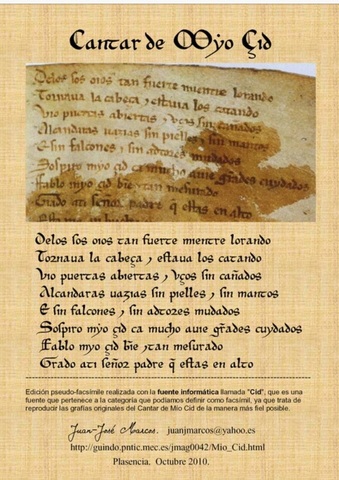 Cantar de Mẏo Çid
Delos sos oios tan fuerte mientre lorando
Tornaua la cabeça ⁊ estaua los catando
Vio puertas abiertas ⁊ vços sin cañados
Alcandaras uazias sin pielles ⁊ sin mantos
E sin falcones ⁊ sin adtores mudados
Sospiro mẏo çid ca mucho auie grãdes cuydados
Fablo mẏo çid biẽ ⁊ tan mesurado
Grado ati señor padre q̃ estas en alto
Delos sos oios tan fuerte mientre lorando
Tornaua la cabeça ⁊ estaua los catando
Vio puertas abiertas ⁊ vços sin cañados
Alcandaras uazias sin pielles ⁊ sin mantos
E sin falcones ⁊ sin adtores mudados
Sospiro mẏo çid ca mucho auie grãdes cuydados
Fablo mẏo çid biẽ ⁊ tan mesurado
Grado ati señoz padre q̃ estas en alto
Edición pseudo-facsímile realizada con la fuente informática llamada "Cid", que es una
fuente que pertenece a la categoría que podíamos definir como facsímil, ya que trata de
reproducir las grafías originales del Cantar de Mio Cid de la manera más fiel posible.
Juan-José Marcos. juanjmarcos@yahoo.es
http://guindo.pntic.mec.es/jmag0042/Mio_Cid.html
Plasencia. Octubre 2010.